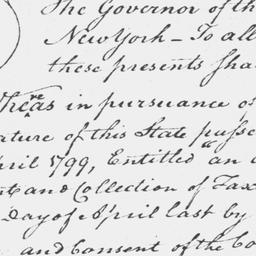 The Governor of th
New York - To all
these presents sha
Whereas in pursuance of
ature of this State passe
pril 1799, Entitled "an a
nt and Collection of Tax
Day of April last by
and Consent of the Co